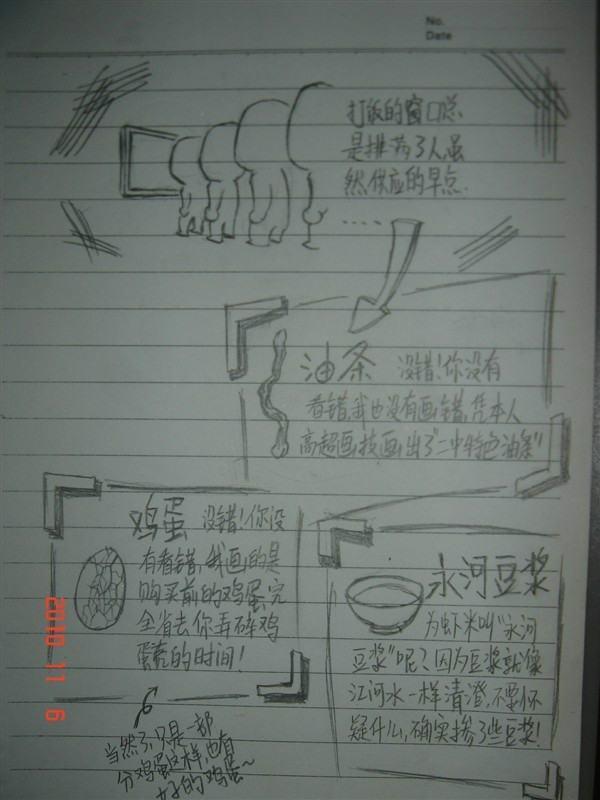 No.
Date
打饭的窗口总
是排满了人虽
然供应的早点
……
油条 没错!你没有
看错,我也没有画错,凭本人
高超画技画出了"二中特色油条"
鸡蛋 没错!你没
有看错,我画的是
购买前的鸡蛋完
全省去你弄碎鸡
蛋壳的时间!
当然了,只是一部
分鸡蛋这样,也有
好的鸡蛋~
永河豆浆
为虾米叫"永河
豆浆"呢?因为豆浆就像
江河水一样清澄,不要怀
疑什么,确实掺了些豆浆!
2010 11 6